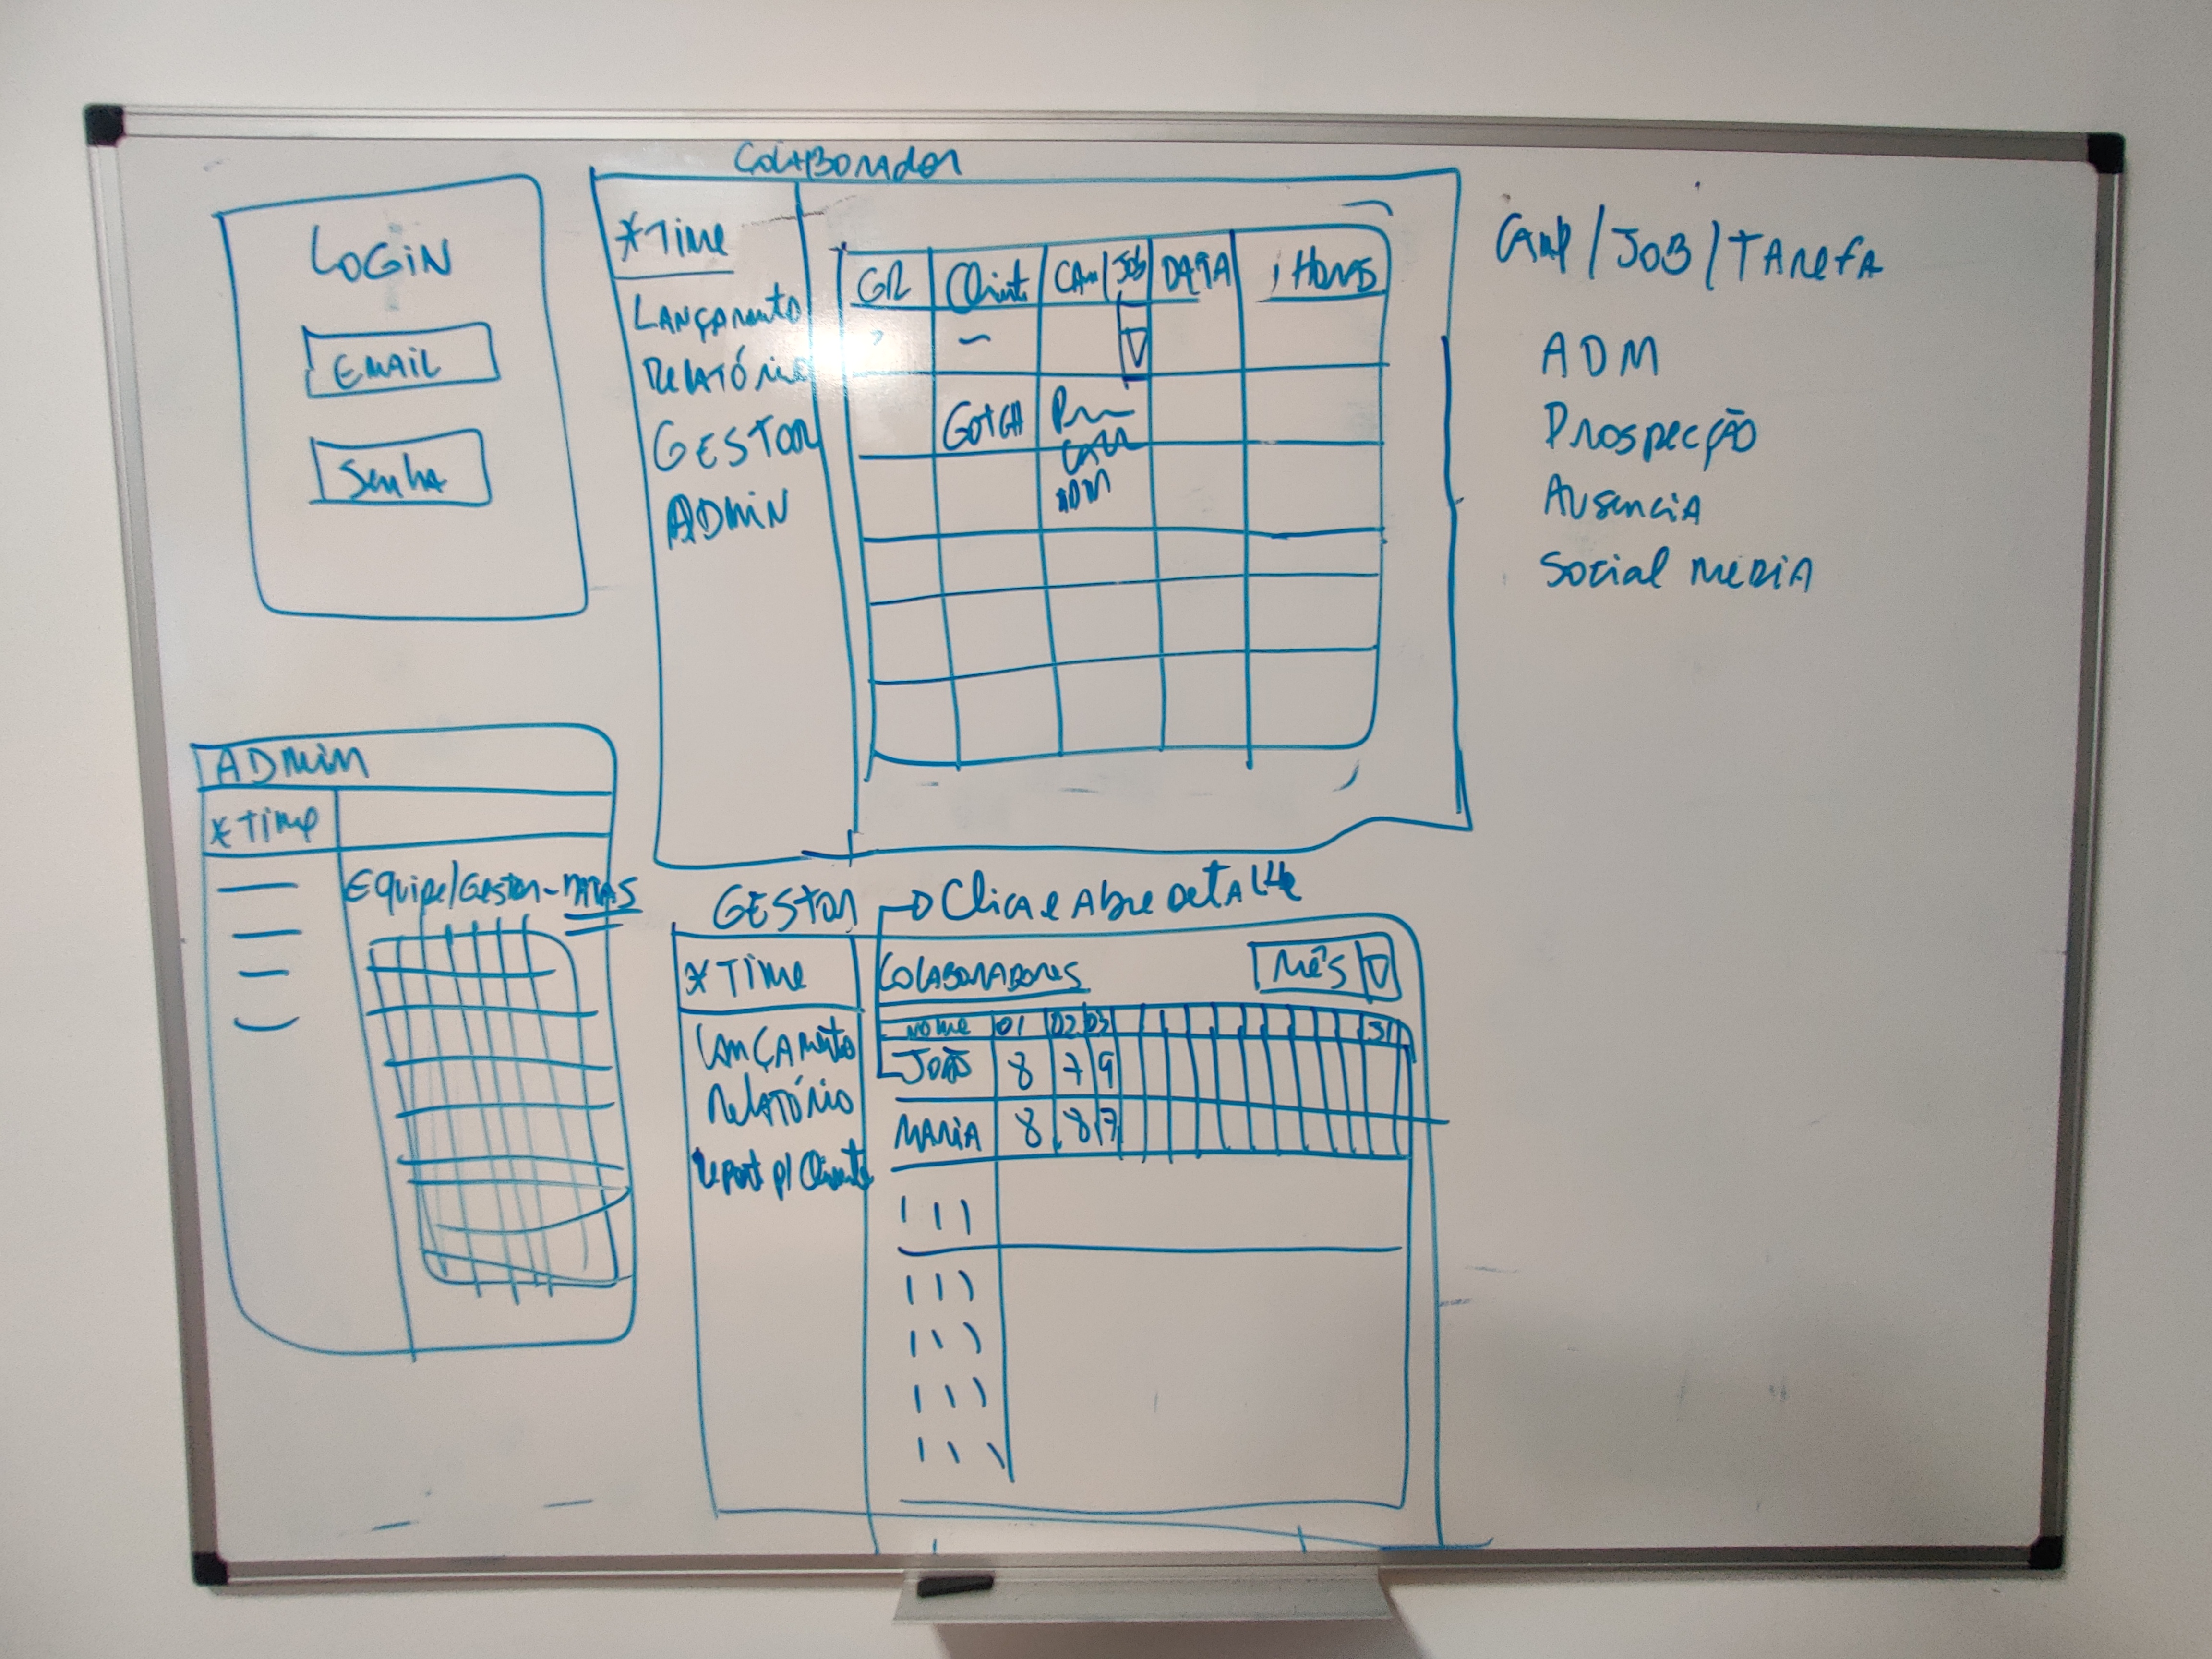 LOGIN
EMAIL
Senha
COLABORADOR
*Time
LANÇAMENTO
RELATÓRIO
GESTOR
ADMIN
GR Client CAM/JOB DATA HORAS
GOTCHA
ADM
CAMP/JOB/TAREFA
ADM
PROSPECÇÃO
AUSENCIA
Social MEDIA
ADMIN
*Time
Equipe/GESTOR-
GESTOR → Clica e ABRE DETALHE
*Time
LANÇAMENTO
RELATÓRIO
report p/ Cliente
COLABORADORES MÊS
NOME 01 02 03 31
JOÃO 8 7 9
MARIA 8 8 7